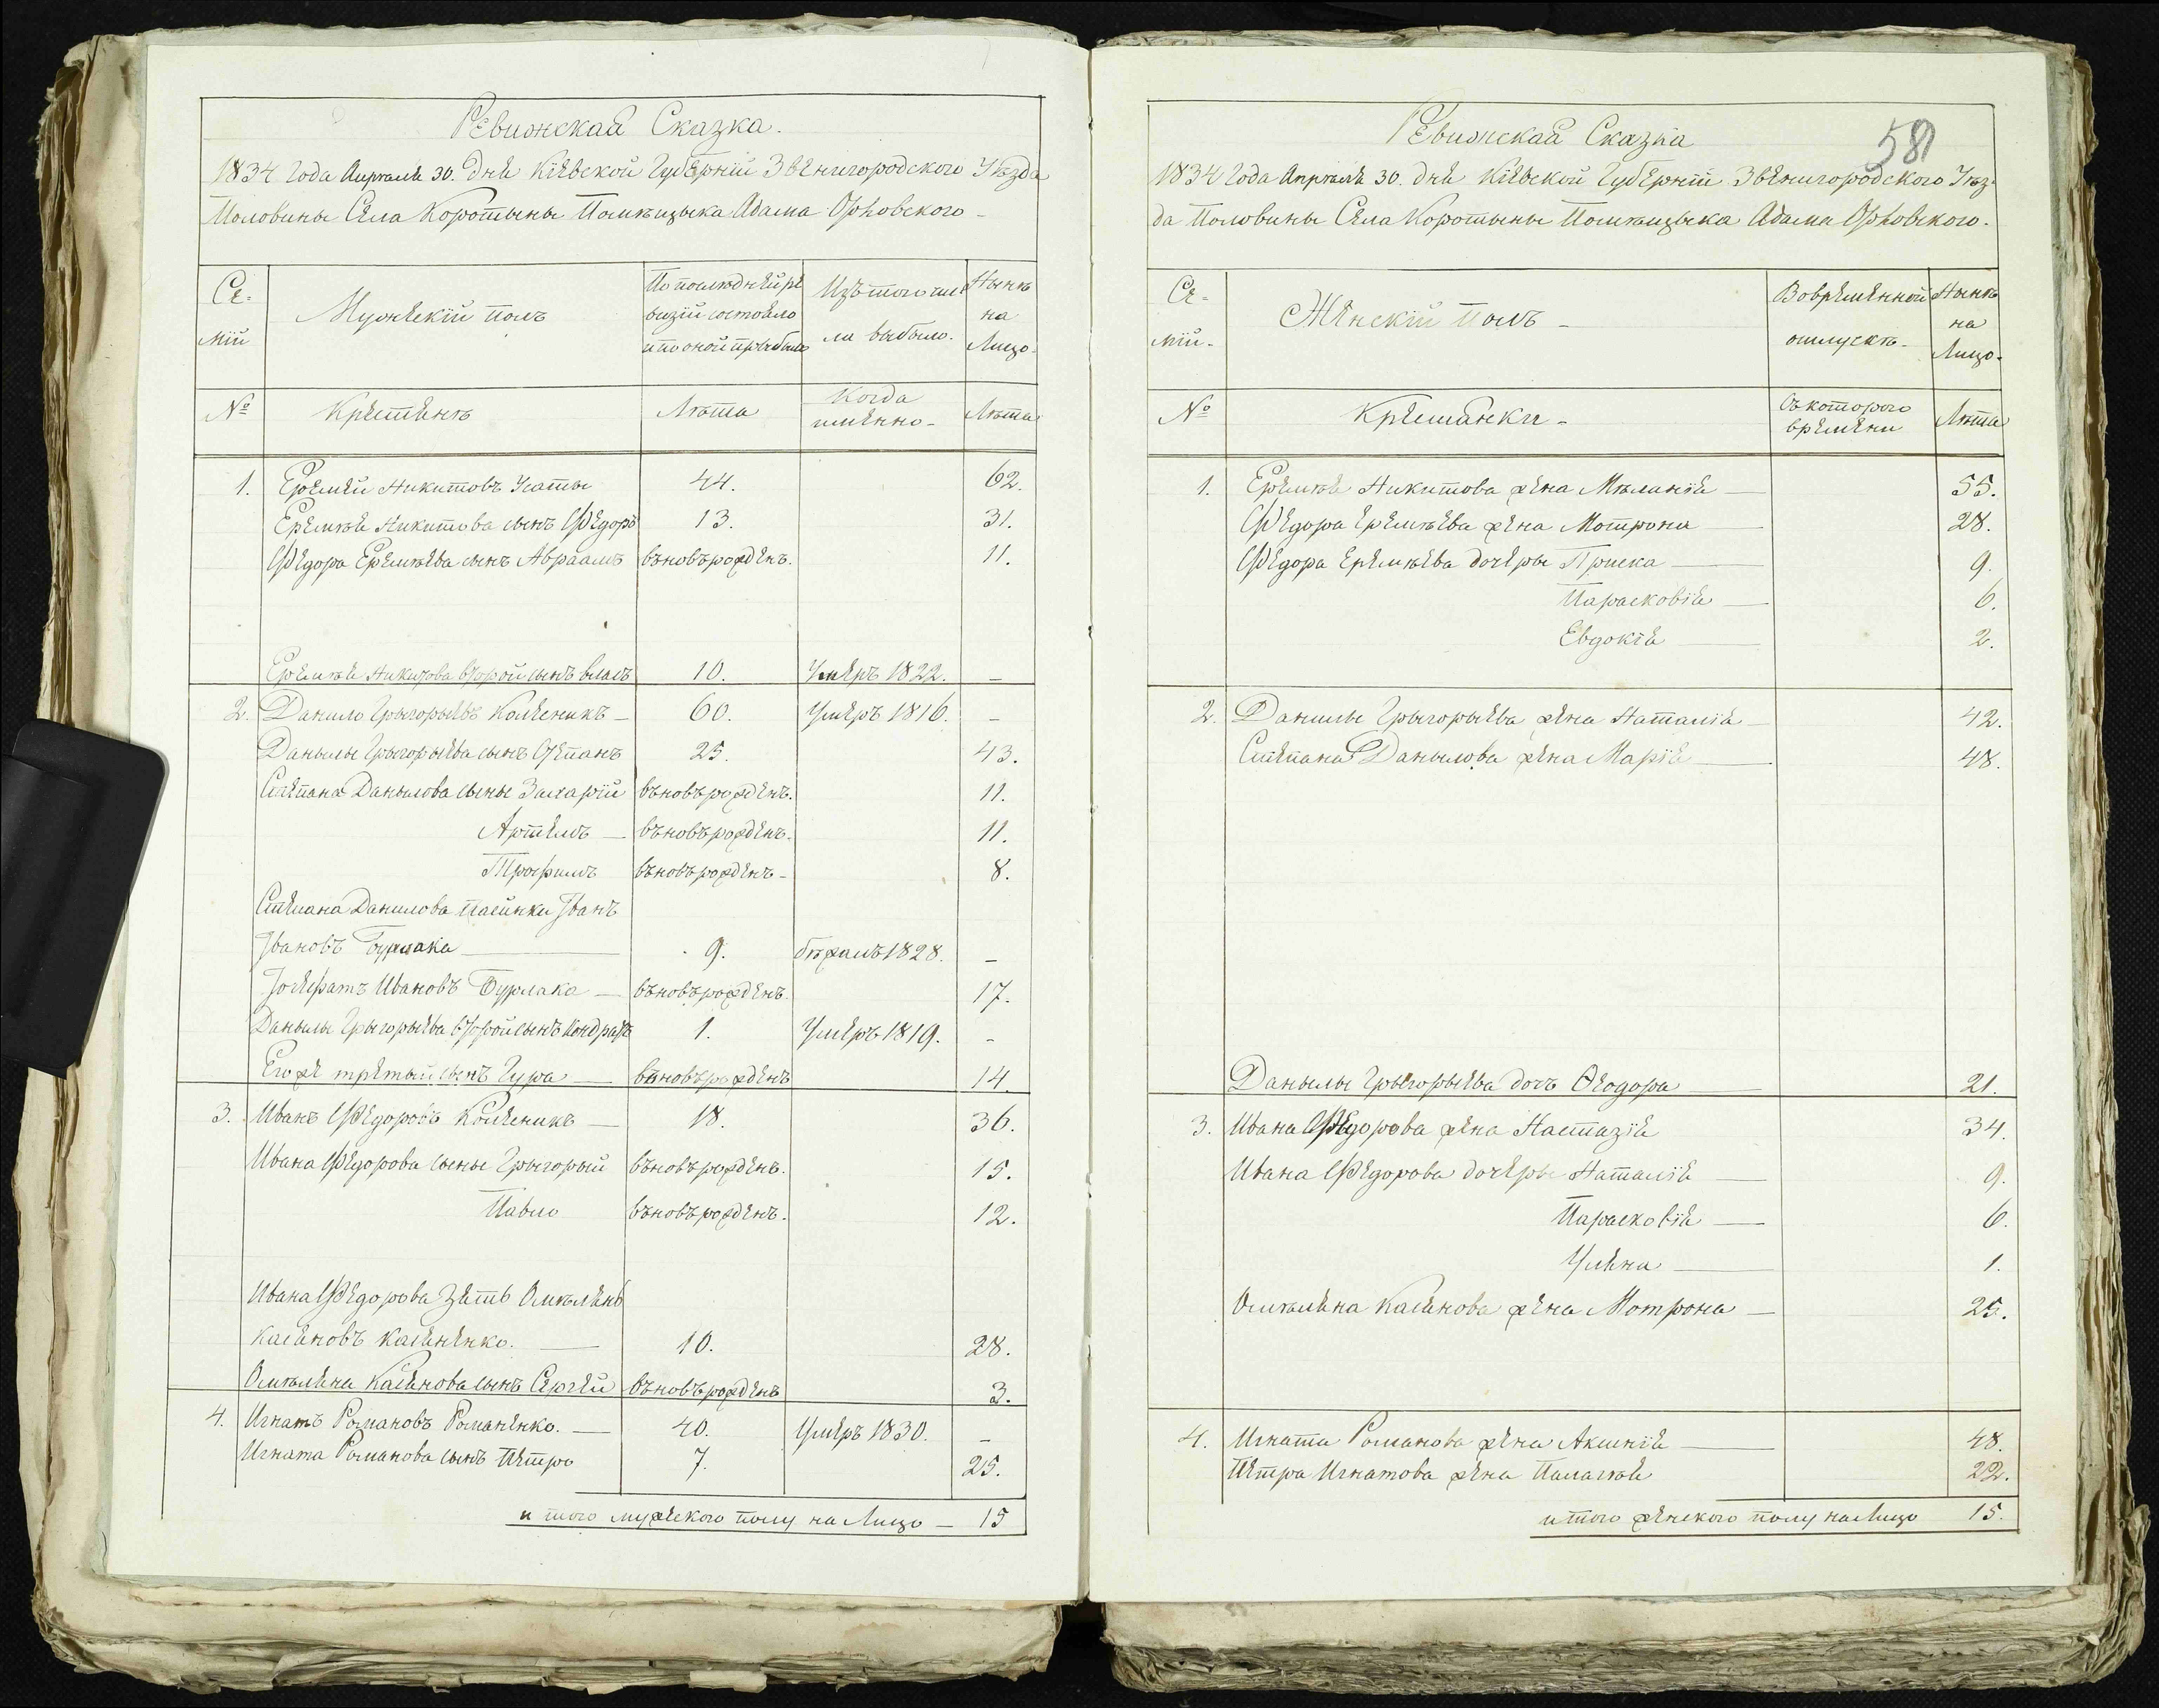 Ревижская Сказка.
1834 года Апреля 30. дня Кіевской Губерніи Звенигородского Уѣзда
Половины Села Коротыны Помѣщыка Адама Орловского
Семіи
Мужескій полъ
По последней ревизіи состояло и по оной прыбыло
Изъ того числа выбыло.
Нынѣ на Лицо.
№
Крестянъ
Лѣта
Когда именно
Лѣта
1. Еремей Никитовъ Усаты 44. 62.
Еремѣя Никитова сынъ Федоръ 13. 31.
Федора Еремѣева сынъ Авраамъ въновърожденъ. 11.
Еремѣя Никитова второй сынъ Власъ 10. Умеръ 1822. –
2. Данило Грыгорыевъ Колесникъ – 60. Умеръ 1816. –
Данылы Грыгорыева сынъ Степанъ 25. 43.
Степана Данылова сыны Захарій въновърожденъ. 11.
Артемъ – въновърожденъ. 11.
Трофимъ въновърожденъ – 8.
Степана Данилова пасынки Іванъ
Івановъ Бурлака – 9. бѣжалъ 1828. –
Іосефатъ Ивановъ Бурлака – въновърожденъ. 17.
Данылы Грыгорыева второй сынъ Кондратъ 1. Умеръ 1819. –
Егоже третый сынъ Гура – въновърожденъ 14.
3. Иванъ Федоровъ Колесникъ – 18. 36.
Ивана Федорова сыны Грыгорый въновърожденъ. 15.
Павло въновърожденъ. 12.
Ивана Федорова Зять Омѣлянъ
Касяновъ Касяненко. – 10. 28.
Омѣляна Касянова сынъ Сергей въновърожденъ 3.
4. Игнатъ Романовъ Романенко. – 40. Умеръ 1830. –
Игната Романова сынъ Петро 7. 25.
и того мужеского полу на Лицо – 15
Ревижская Сказка
581
1834 года Апреля 30. дня Кіевской Губерніи Звенигородского Уѣз-
да Половины Села Коротыны Помѣщыка Адама Орловского.
Семіи.
Женскій Полъ –
Вовременной отлускѣ –
Нынѣ на Лицо.
№
Крестянки –
Съкоторого времени
Лѣта
1. Еремѣя Никитова жена Мѣланія – 55.
Федора Еремѣева жена Мотрона – 28.
Федора Еремѣева дочерыПриска – 9.
Парасковія – 6.
Евдокія – 2.
2. Данилы Грыгорыева жена Наталія – 42.
Степана Данылова жена Марія – 48.
Данылы Грыгорыева дочъ Ѳеодора – 21.
3. Ивана Федорова жена Настазія 34.
Ивана Федорова дочеры Наталія – 9.
Парасковія – 6.
Уляна – 1.
Омѣляна Касянова жена Мотрона – 25.
4. Игната Романова жена Аксинія – 48.
Петра Игнатова жена Палагѣя 22.
итого женского полу наЛицо 15.